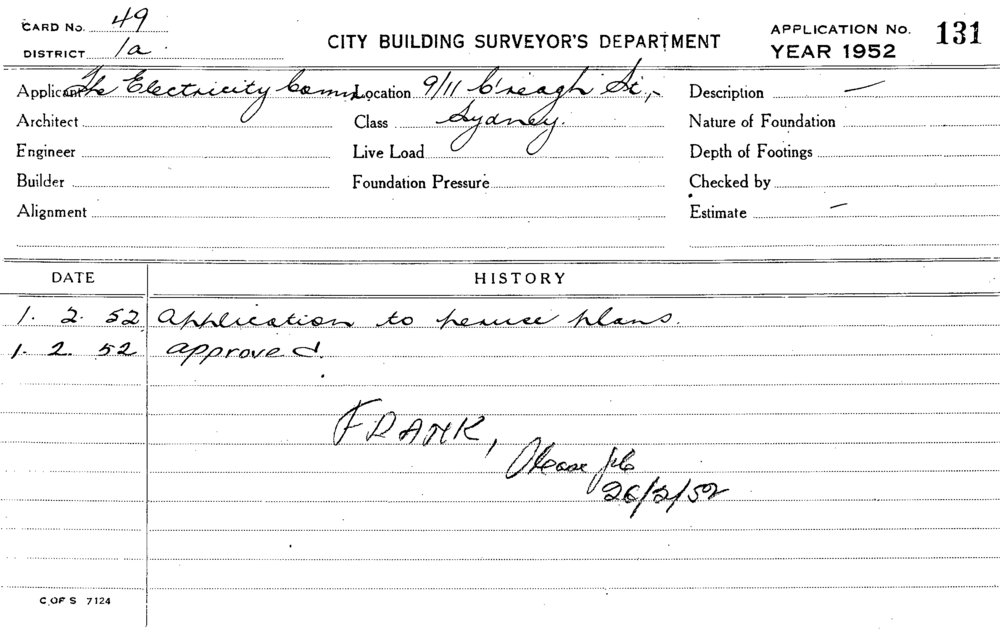 CARD No. 49
DISTRICT 1a
CITY BUILDING SURVEYOR'S DEPARTMENT
APPLICATION No. 131
YEAR 1952
Applicant The Electricity Comm. Location 9/11 C'reagh St,- Description —
Architect Class Sydney. Nature of Foundation
Engineer Live Load Depth of Footings
Builder Foundation Pressure Checked by
Alignment Estimate —
DATE HISTORY
1. 2. 52 Application to peruse plans.
1. 2. 52 approved.
FRANK,
Please file
26/2/52
C OF S 7124